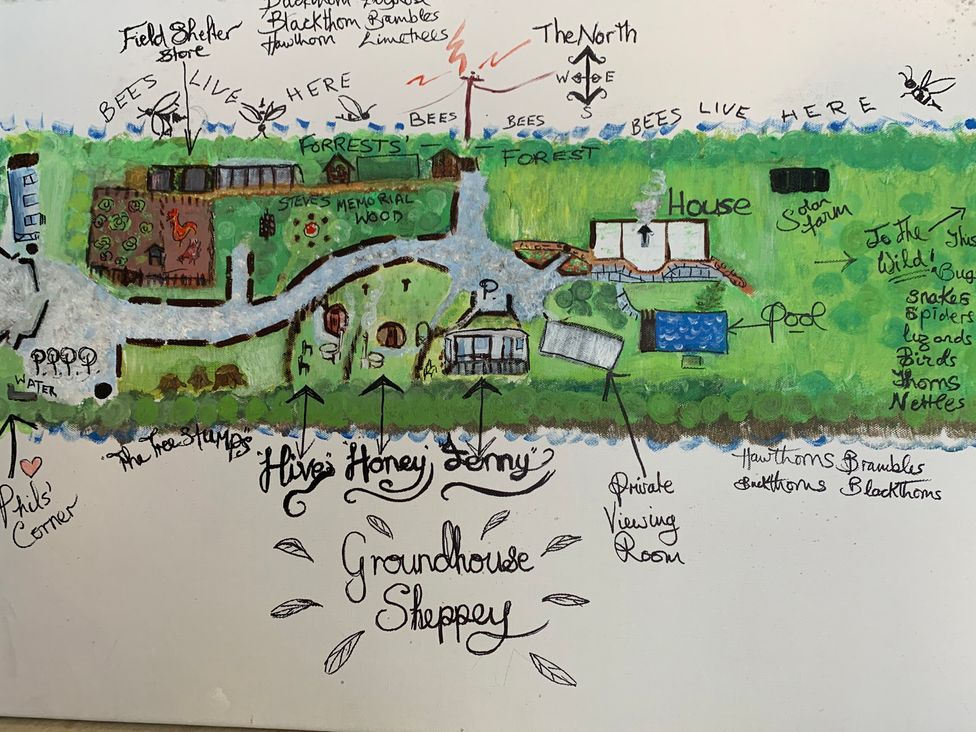 Blackthorn Brambles
Hawthorn Limetrees
Field Shelter
Store
The North
W O E
S
BEES LIVE HERE
BEES BEES
BEES LIVE HERE
FORRESTS' FOREST
STEVES MEMORIAL
WOOD
House
Solar
farm
To The
Wild!
This
Bug
Snakes
Spiders
Lizards
Birds
Thorns
Nettles
P
Pool
WATER
Phils'
Corner
"The Tree Stumps"
"Hive" "Honey" "Jenny"
Private
Viewing
Room
Hawthorns Brambles
Buckthorns Blackthorns
Groundhouse
Sheppey